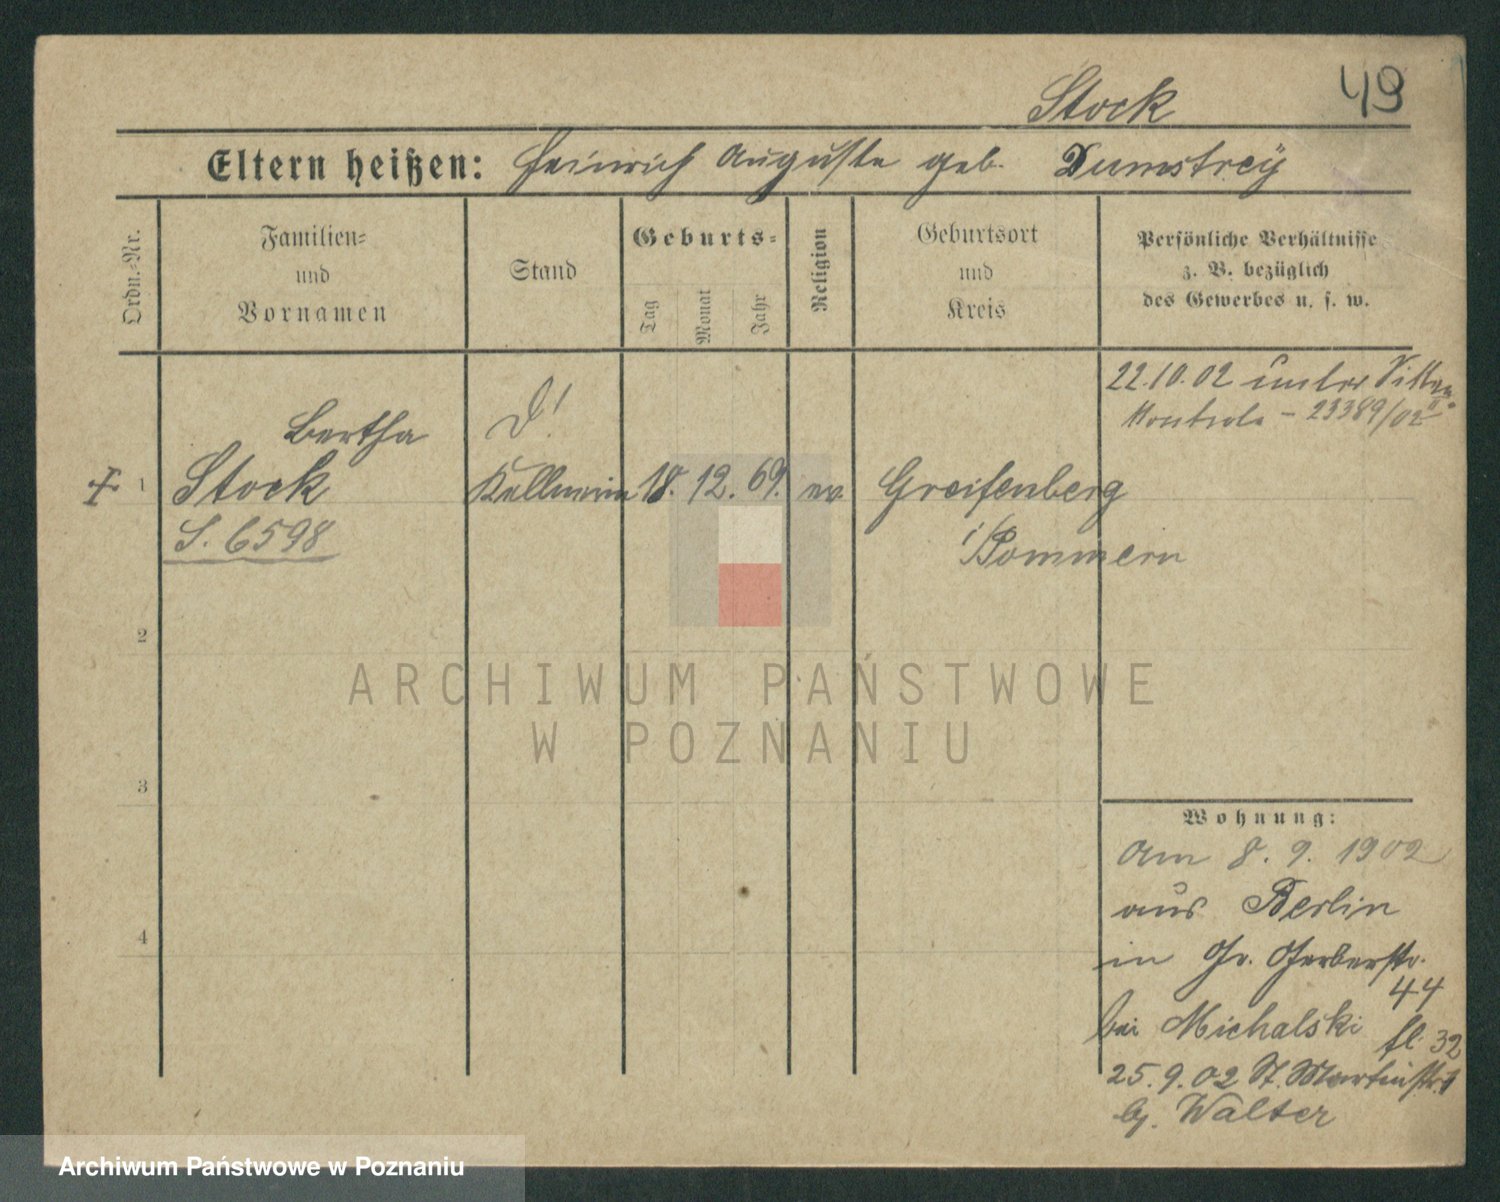 Stock
49
Eltern heißen: Heinrich Auguste geb. Dumstrey
Ordn.-Nr.
Familien-
und
Vornamen
Stand
Geburts-
Tag
Monat
Jahr
Religion
Geburtsort
und
Kreis
Persönliche Verhältnisse
z. B. bezüglich
des Gewerbes u. s. w.
22.10.02 unter Sitten
Kontrole - 23389/02 II
D!
Bertha
1 Stock Kellnerin 18. 12. 69. ev. Greifenberg
S. 6598
i/Pommern
2
3
4
Wohnung:
am 8. 9. 1902
aus Berlin
in Gr. Gerberstr.
44
bei Michalski
fl. 32
25. 9. 02 St. Martinstr. 1
bj. Walter
ARCHIWUM PAŃSTWOWE
W POZNANIU
Archiwum Państwowe w Poznaniu